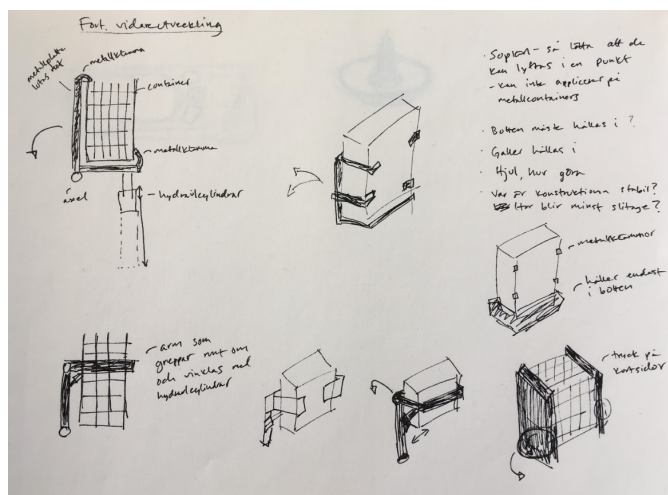 Fort. vidareutveckling
metallplatta
lutas åt
metallklämma
container
metallklämma
axel
hydraulcylindrar
· Sopkärl – så lätta att de
kan lyftas i en punkt
– kan inte appliceras på
metallcontainers
· Botten måste hållas i ?
· Galler hållas i
· Hjul, hur göra
· Var är konstruktionen stabil?
Var blir minst slitage?
metallklämmor
håller endast
i botten
arm som
greppar runt om
och vinklas med
hydraulcylindrar
tryck på
kortsidor